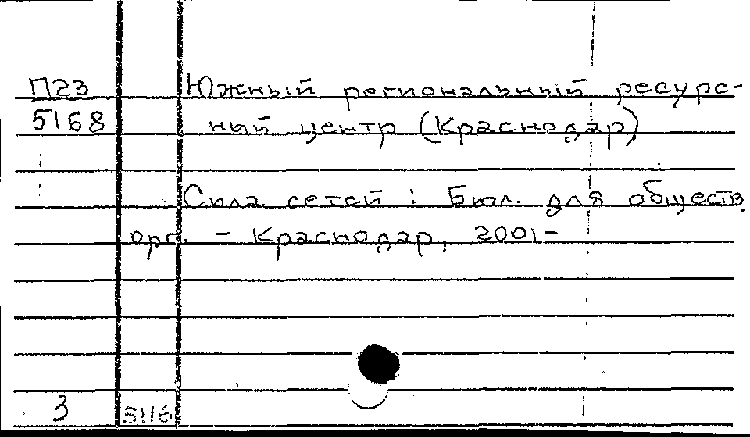 П23 Южный региональный ресурс-
5168 ный центр (Краснодар)
Сила сетей : Бюл. для обществ
орг. - Краснодар, 2001-
3 5116